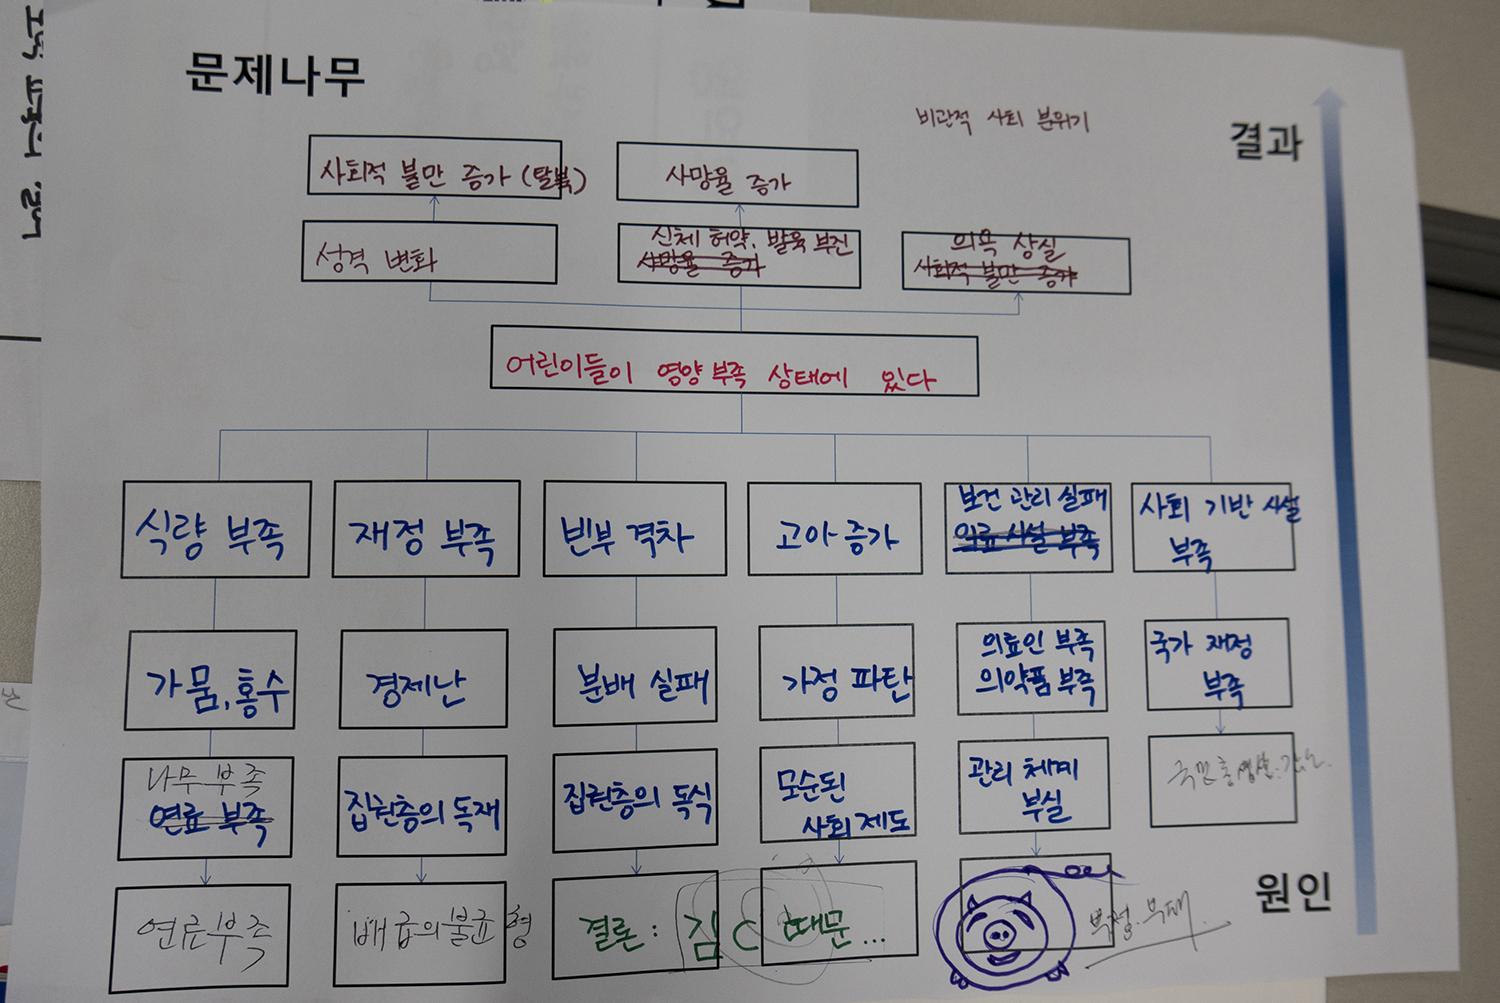 문제나무
비관적 사회 분위기
결과
사회적 불만 증가 (탈북)
사망율 증가
성격 변화
신체 허약, 발육 부진
사망율 증가
의욕 상실
사회적 불만 증가
어린이들이 영양 부족 상태에 있다
식량 부족
재정 부족
빈부 격차
고아 증가
보건 관리 실패
의료 시설 부족
사회 기반 시설
부족
가뭄, 홍수
경제난
분배 실패
가정 파탄
의료인 부족
의약품 부족
국가 재정
부족
나무 부족
연료 부족
집권층의 독재
집권층의 독식
모순된
사회 제도
관리 체계
부실
연료 부족
배급의 불균형
결론 : 김 C 때문 ...
부정.부패
원인